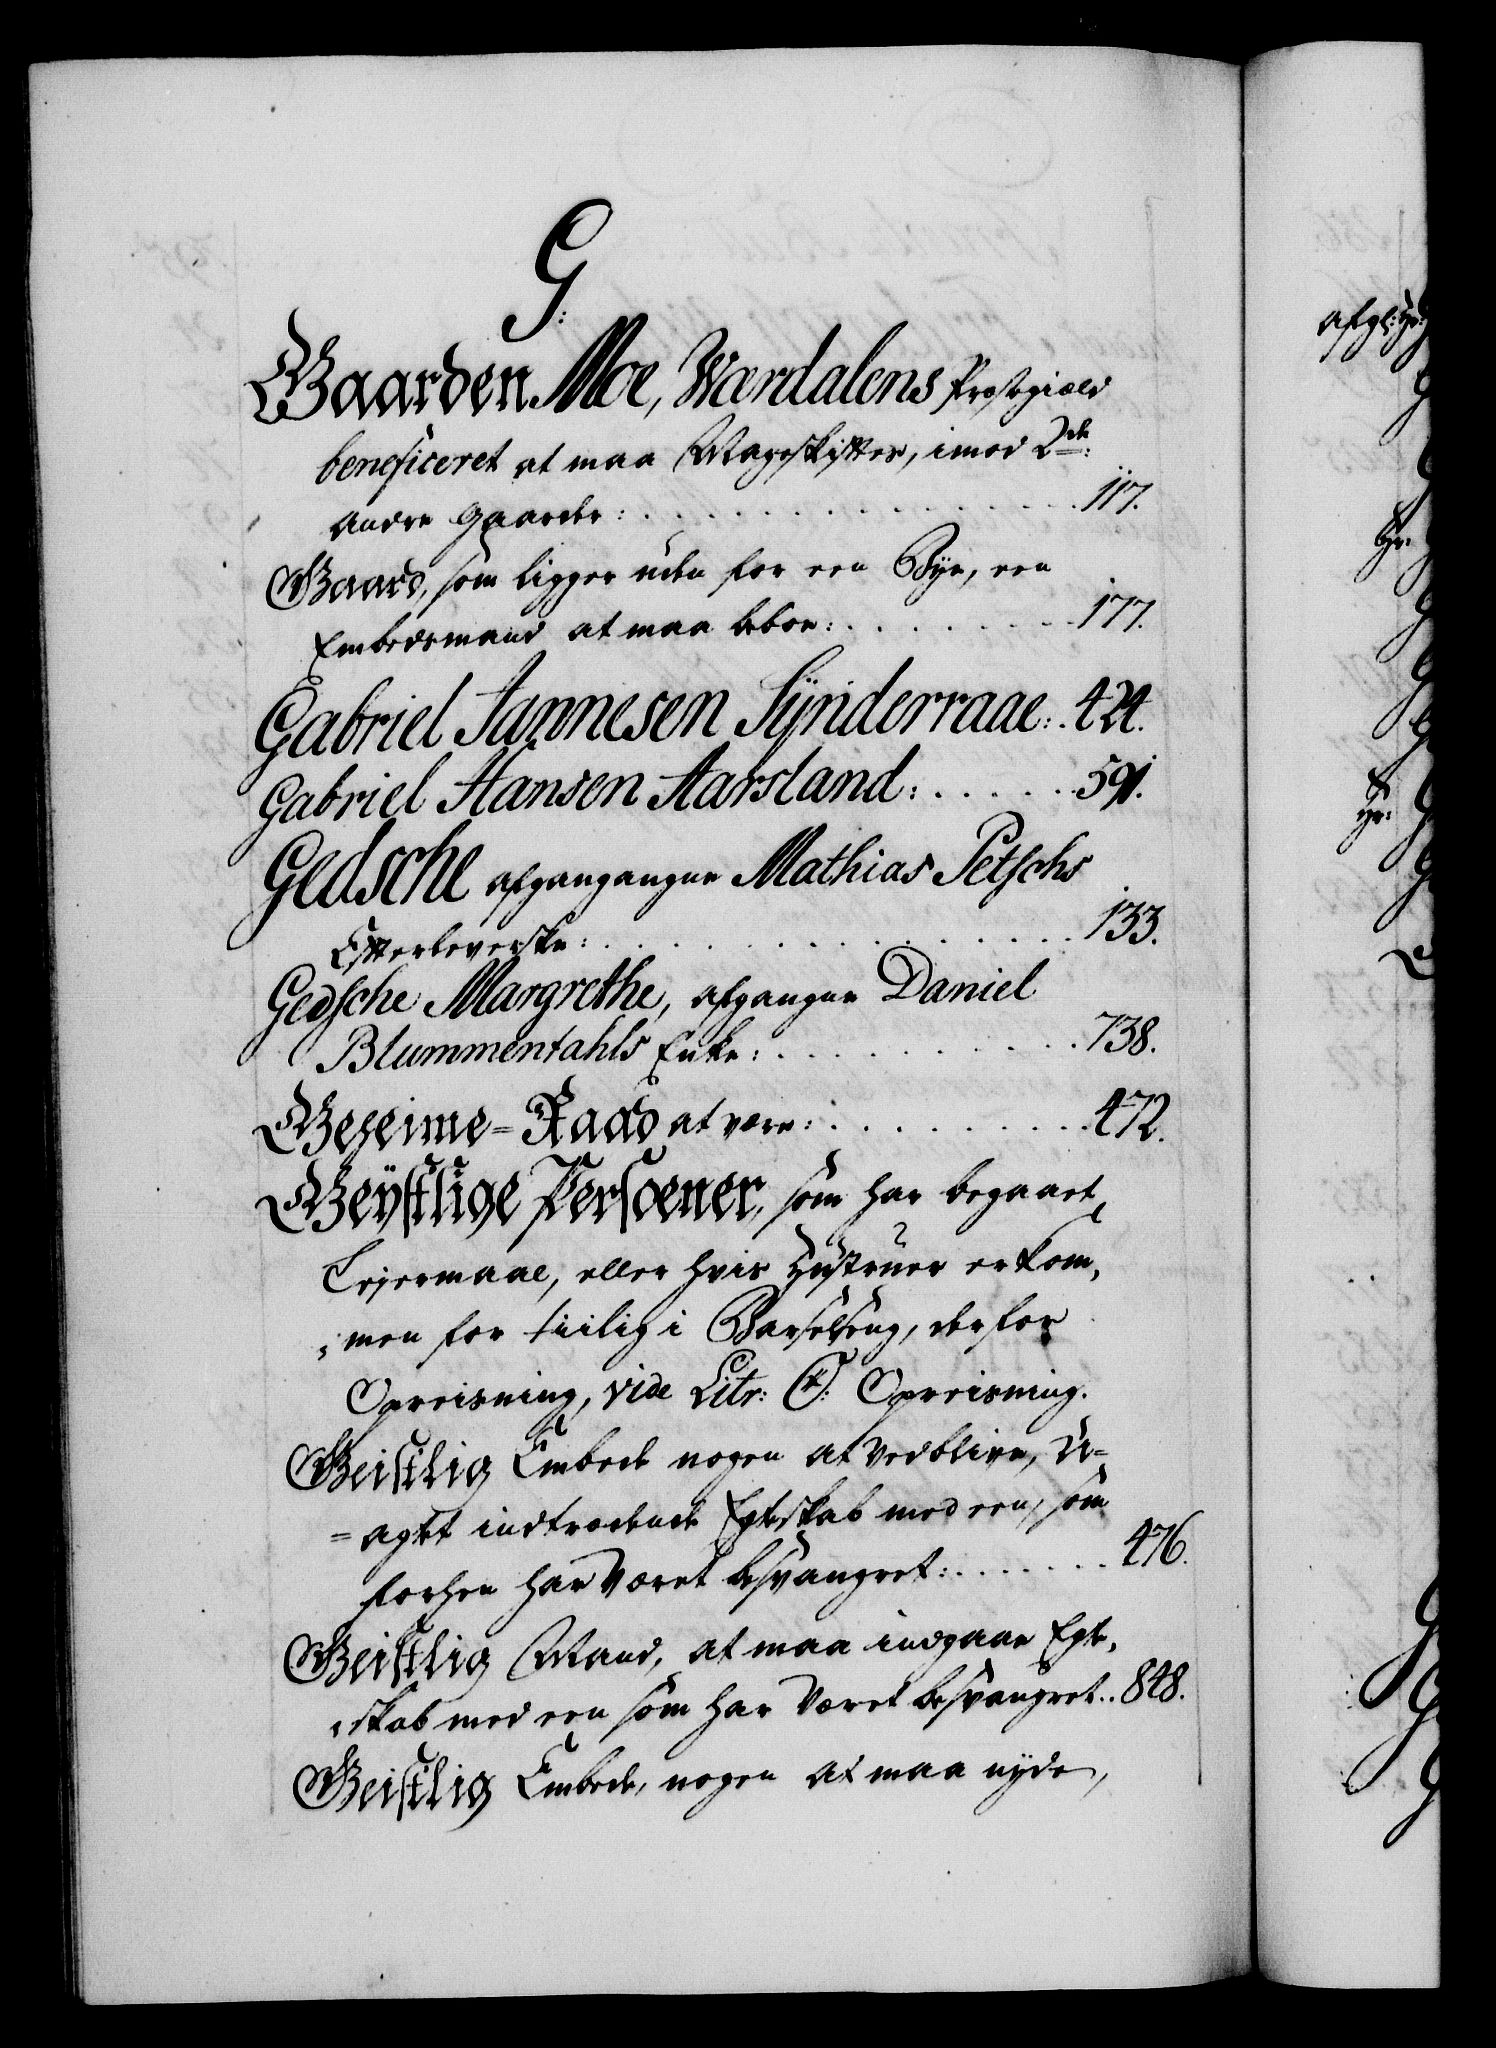 G:
Gaarden Moe, Værdalens Præstegiæld
beneficeret at maa Mageskifter, imod 2de:
andre gaarder: 117.
Gaard, som ligger uden for een Bÿe, een
Embedsmand at maa beboe: 177.
Gabriel Jannesen Sÿnderraae: 424.
Gabriel Hansen Aarsland: 591.
Gedsche afgangangne Mathias Petschs
Efterleverske: 133.
Gedsche Margrethe, afgangne Daniel
Blummentahls Enke: 738.
Geheime=Raad at være: 472.
Geÿstlige Persoener, som har begaaet
Lejermaal, eller hvis Hustruer er kom,
,men for tiilig i Barselseng, derfor
Opreisning, vide Litr: O: Opreisning.
Geistlig Embede nogen at vedblive, U=
=agtet indtrædende Egteskab med een, som
forhen har Været besvangret: 476.
Geistlig Mand, at maa indgaae Egte,
,skab med een som har Været besvangret.. 848.
Geistlig Embede, nogen at maa nÿde,
afgl: Hr:
Hr:
Hr: